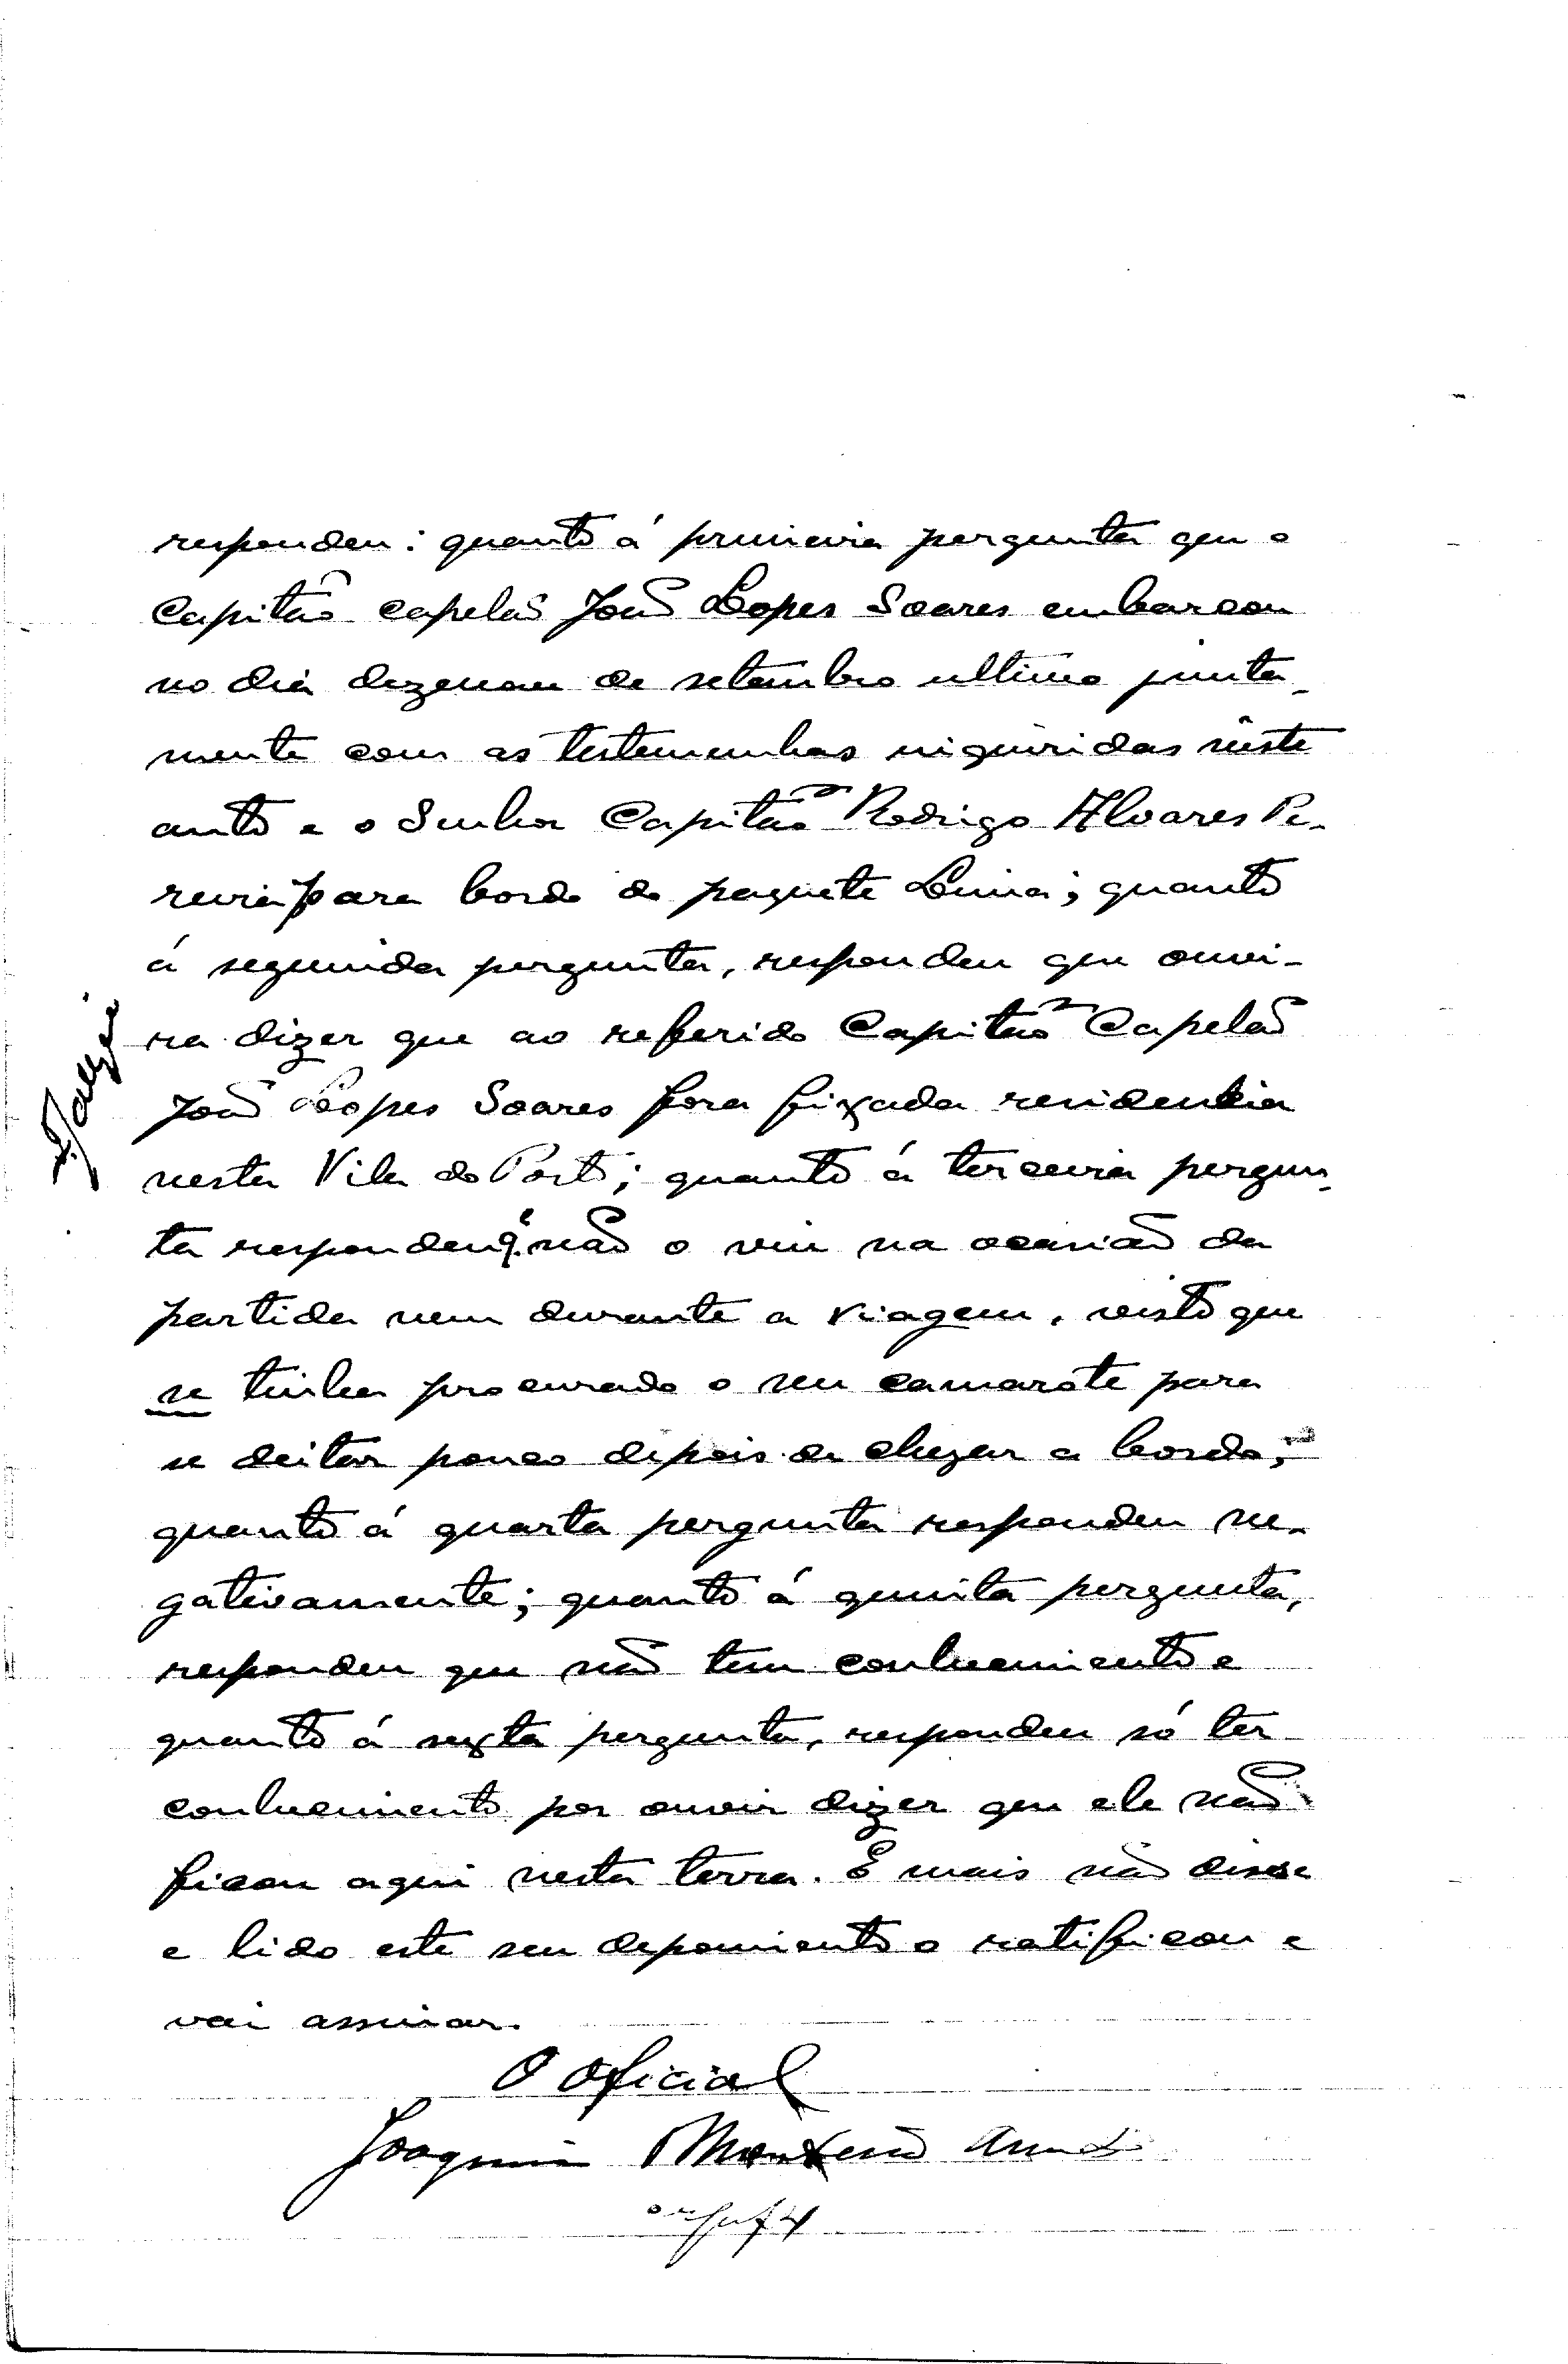 respondeu: quanto á primeira pergunta que o
Capitão capelão João Lopes Soares embarcou
no dia dezenove de setembro ultimo junta-
mente com as testemunhas inquiridas nêste
auto e o Senhor Capitão Rodrigo Alvares Pe-
reira para bordo do paquete Lima; quanto
á segunda pergunta, respondeu que ouvi-
ra dizer que ao referido Capitão Capelão
João Lopes Soares fora fixada residencia
nesta Vila do Porto; quanto á terceira pergun-
ta respondeu q.e não o viu na ocasião da
partida nem durante a viagem, visto que
se tinha procurado o seu camarote para
se deitar pouco depois de chegar a bordo;
quanto á quarta pergunta respondeu ne-
gativamente; quanto á quinta pergunta,
respondeu que não tem conhecimento e
quanto á sexta pergunta, respondeu só ter
conhecimento por ouvir dizer que ele não
ficou aqui nesta terra. E mais não disse
e lido este seu depoimento o ratificou e
vai assinar.
O Oficial
Joaquim